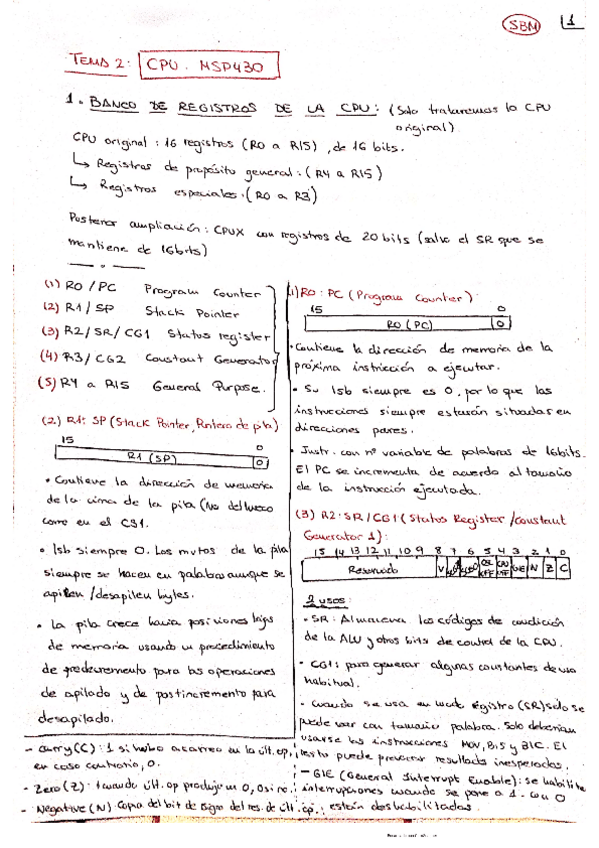 SBM 1
TEMA 2: CPU. MSP430
1. BANCO DE REGISTROS DE LA CPU: (Solo trataremos la CPU
original)
CPU original: 16 registros (R0 a R15), de 16 bits.
↳ Registros de propósito general: (R4 a R15)
↳ Registros especiales: (R0 a R3)
Posterior ampliación: CPUX con registros de 20 bits (salvo el SR que se
mantiene de 16 bits)
(1) R0 / PC Program Counter
(2) R1 / SP Stack Pointer
(3) R2 / SR / CG1 Status register
(4) R3 / CG2 Constant Generator
(5) R4 a R15 General Purpose.
(2) R1: SP (Stack Pointer, Puntero de pila)
15 0
R1 (SP) 0
• Contiene la dirección de memoria
de la cima de la pila (No del hueco
como en el CS1.
• lsb siempre 0. Los mvtos de la pila
siempre se hacen en palabras aunque se
apilen / desapilen bytes.
• La pila crece hacia posiciones bajas
de memoria usando un procedimiento
de predecremento para las operaciones
de apilado y de postincremento para
desapilado.
(1) R0: PC (Program Counter)
15 0
R0 (PC) 0
• Contiene la dirección de memoria de la
próxima instrucción a ejecutar.
• Su lsb siempre es 0, por lo que las
instrucciones siempre estarán situadas en
direcciones pares.
• Instr. con nº variable de palabras de 16bits.
El PC se incrementa de acuerdo al tamaño
de la instrucción ejecutada.
(3) R2: SR / CG1 (Status Register / constant
Generator 1):
15 14 13 12 11 10 9 8 7 6 5 4 3 2 1 0
Reservado V GIE N Z C
2 usos:
• SR: Almacena los códigos de condición
de la ALU y otros bits de control de la CPU.
• CG1: para generar algunas constantes de uso
habitual.
• cuando se usa en modo registro (SR) solo se
puede usar con tamaño palabra. Solo deberían
usarse las instrucciones MOV, BIS y BIC. El
resto puede provocar resultados inesperados.
— GIE (General Interrupt Enable): se habilitan
interrupciones cuando se pone a 1. con 0
están deshabilitadas.
- Carry (C): 1 si hubo acarreo en la últ. op,
en caso contrario, 0.
- Zero (Z): cuando últ. op produjo un 0, 0 si no.
- Negative (N): Copia del bit de signo del res. de últ. op.